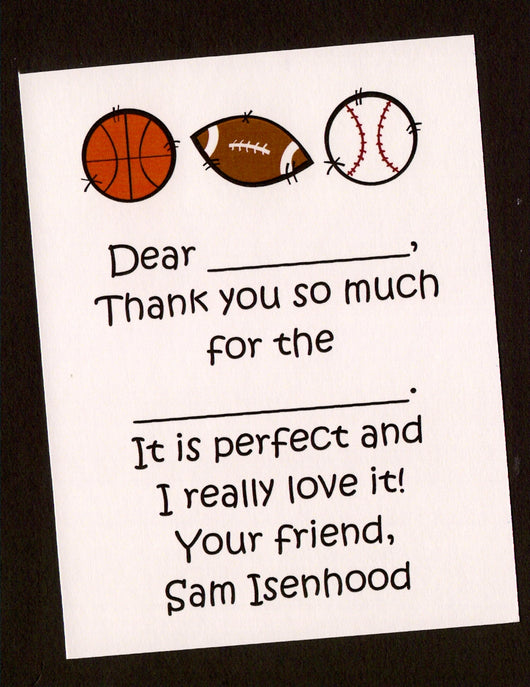 Dear ____________,
Thank you so much
for the
________________.
It is perfect and
I really love it!
Your friend,
Sam Isenhood